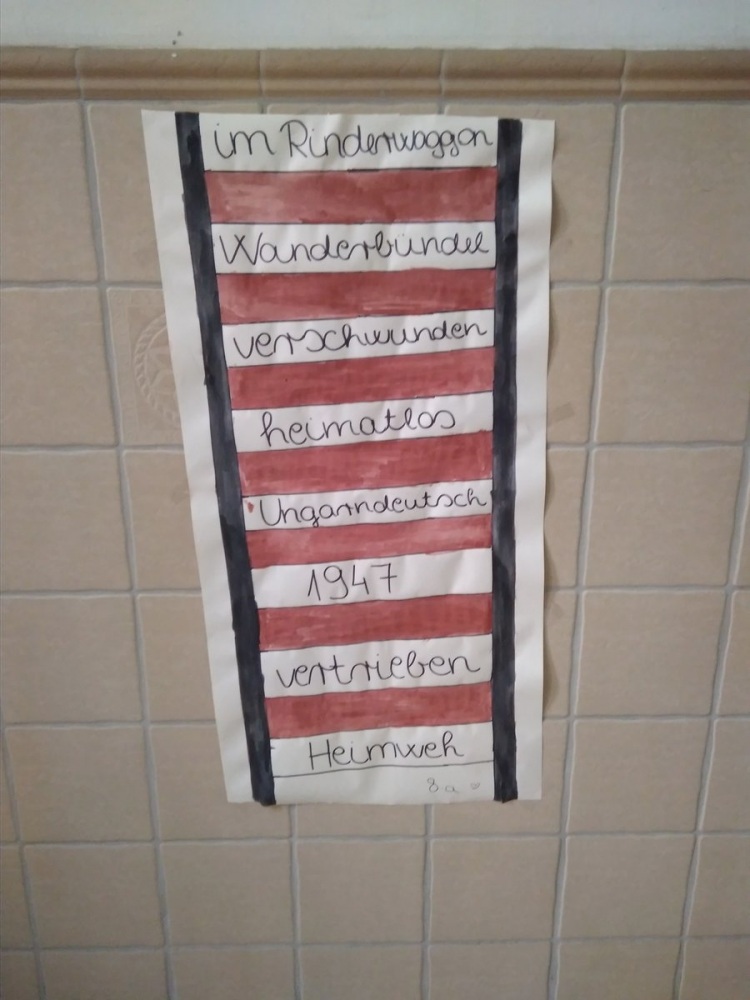 im Rinderwaggon
Wanderbündel
verschwunden
heimatlos
Ungarndeutsch
1947
vertrieben
Heimweh
8a